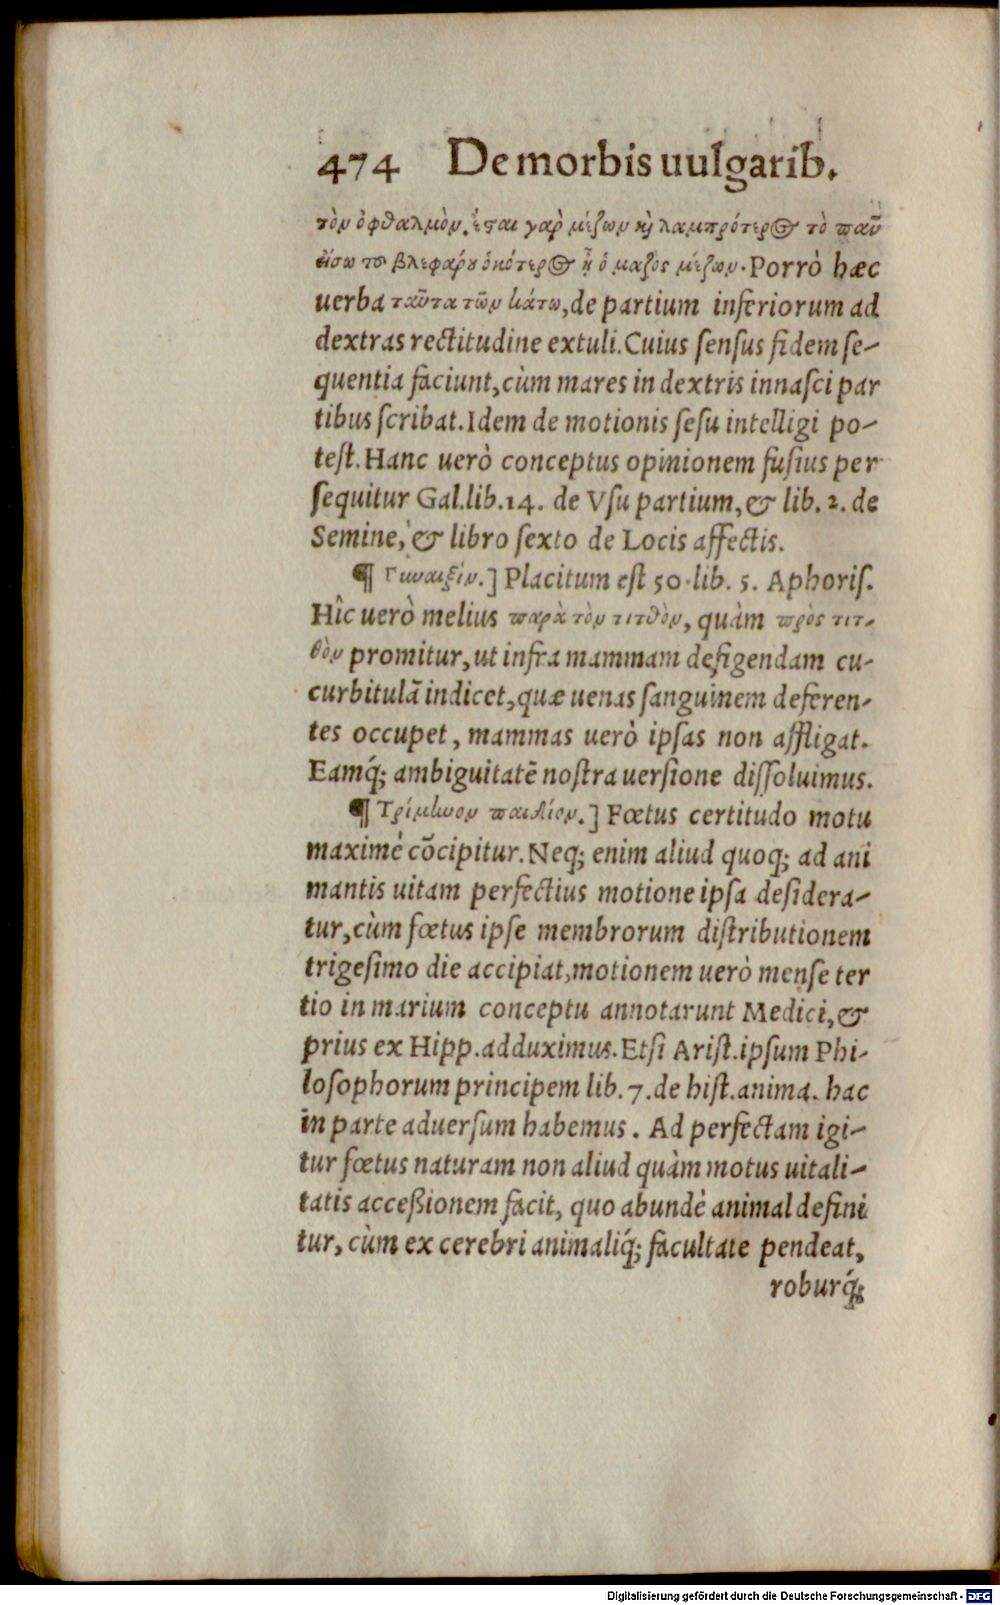 474 De morbis uulgarib.
τὸν ὀφθαλμὸν. ἔσται γαρ̀ μείζων κ̀ λαμπρότερος τὸ παν̃
εἴσω τοῦ βλεφάρου ὁκότερος ἢ ὁ μαζὸς μείζων. Porrò hæc
uerba ταῦτα τῶν κάτω, de partium inferiorum ad
dextras rectitudine extuli. Cuius ſenſus fidem ſe-
quentia faciunt, cùm mares in dextris innaſci par
tibus ſcribat. Idem de motionis ſeſu intelligi po-
teſt. Hanc uerò conceptus opinionem fuſius per
ſequitur Gal. lib. 14. de Vſu partium, & lib. 2. de
Semine, & libro ſexto de Locis affectis.
¶ Γυναιξὶν.] Placitum eſt 50. lib. 5. Aphoriſ.
Hîc uerò melius παρὰ τὸν τιτθὸν, quàm πρὸς τιτ-
θὸν promitur, ut infra mammam defigendam cu-
curbitulã indicet, quæ uenas ſanguinem deferen-
tes occupet, mammas uerò ipſas non affligat.
Eamq́; ambiguitatẽ noſtra uerſione diſſoluimus.
¶ Τρίμηνον παιδίον.] Fœtus certitudo motu
maximè cõcipitur. Neq; enim aliud quoq; ad ani
mantis uitam perfectius motione ipſa deſidera-
tur, cùm fœtus ipſe membrorum diſtributionem
trigeſimo die accipiat, motionem uerò menſe ter
tio in marium conceptu annotarunt Medici, &
prius ex Hipp. adduximus. Etſi Ariſt. ipſum Phi-
loſophorum principem lib. 7. de hiſt. anima. hac
in parte aduerſum habemus. Ad perfectam igi-
tur fœtus naturam non aliud quàm motus uitali-
tatis acceßionem facit, quo abundè animal defini
tur, cùm ex cerebri animaliq́; facultate pendeat,
roburq́;
Digitalisierung gefördert durch die Deutsche Forschungsgemeinschaft - DFG